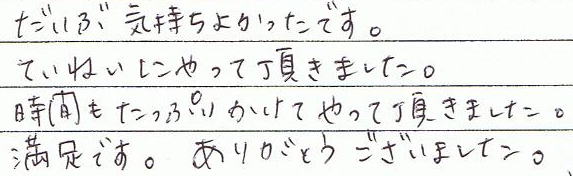 だいぶ気持ちよかったです。
ていねいにやって頂きました。
時間もたっぷりかけてやって頂きました。
満足です。ありがとうございました。